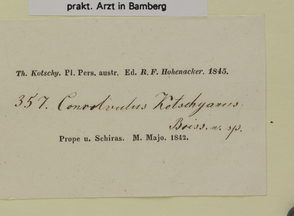 prakt. Arzt in Bamberg
Th. Kotschy. Pl. Pers. austr. Ed. R. F. Hohenacker. 1845.
357. Convolvulus Kotschyanus
Boiss. n. sp.
Prope u. Schiras. M. Majo. 1842.